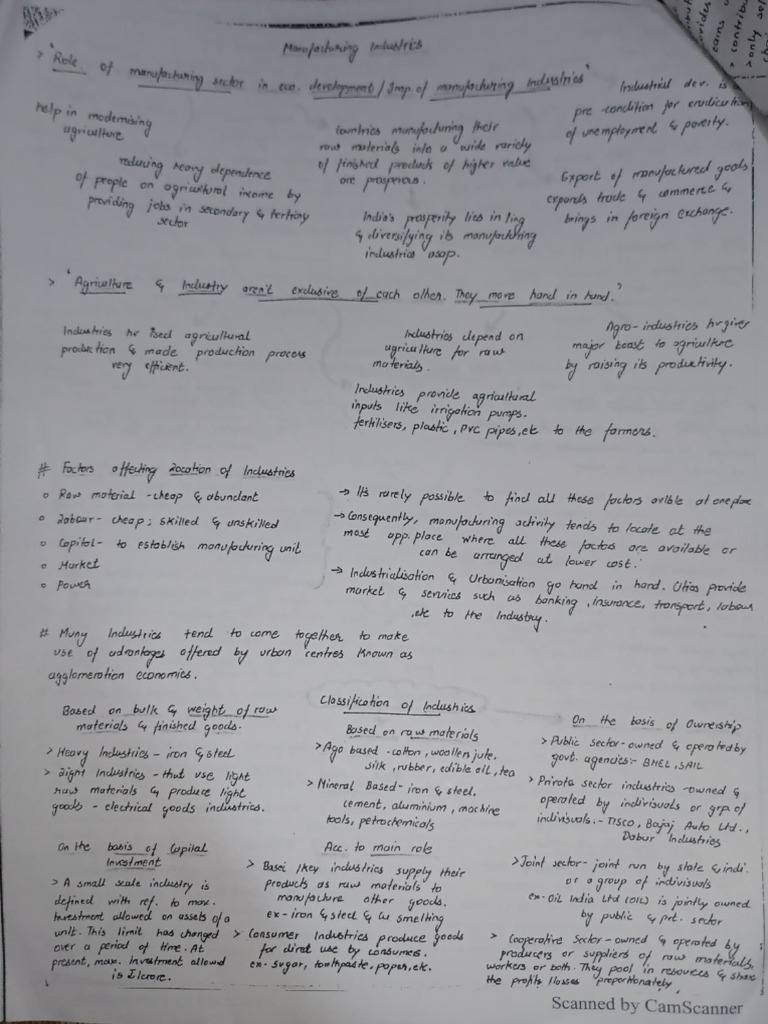 Manufacturing Industries
> 'Role of manufacturing sector in eco. development / Imp. of manufacturing Industries'
help in modernising
agriculture
reducing heavy dependence
of people on agricultural income by
providing jobs in secondary & tertiary
sector
Countries manufacturing their
raw materials into a wide variety
of finished products of higher value
are prosperous.
India's prosperity lies in ↑ing
& diversifying its manufacturing
industries asap.
Industrial dev. is a
pre-condition for eradication
of unemployment & poverty.
Export of manufactured goods
expands trade & commerce &
brings in foreign exchange.
> 'Agriculture & Industry aren't exclusive of each other. They move hand in hand.'
Industries hv ↑sed agricultural
production & made production process
very efficient.
Industries depend on
agriculture for raw
materials.
Industries provide agricultural
inputs like irrigation pumps,
fertilisers, plastic, PVC pipes, etc to the farmers.
Agro-industries hv given
major boost to agriculture
by raising its productivity.
# Factors affecting Location of Industries
o Raw material - cheap & abundant
o Labour - cheap; skilled & unskilled
o Capital - to establish manufacturing unit
o Market
o Power
→ Its rarely possible to find all these factors avlble at one place
→ Consequently, manufacturing activity tends to locate at the
most app. place where all these factors are available or
can be arranged at lower cost.
→ Industrialisation & Urbanisation go hand in hand. Cities provide
market & services such as banking, insurance, transport, labour
,etc to the Industry.
# Many Industries tend to come together to make
use of advantages offered by urban centres known as
agglomeration economies.
Classification of Industries
Based on bulk & weight of raw
materials & finished goods.
> Heavy Industries - iron & steel
> Light Industries - that use light
raw materials & produce light
goods - electrical goods industries.
Based on raw materials
> Ago based - cotton, woollen, jute,
silk, rubber, edible oil, tea
> Mineral Based - iron & steel,
cement, aluminium, machine
tools, petrochemicals
On the basis of Ownership
> Public sector - owned & operated by
govt. agencies:- BHEL, SAIL
> Private sector industries - owned &
operated by indivisuals or grp. of
indivisuals:- TISCO, Bajaj Auto Ltd.,
Dabur Industries
> Joint sector - joint run by state & indi.
or a group of indivisuals
ex- Oil India Ltd (OIL) is jointly owned
by public & prt. sector
> Cooperative Sector - owned & operated by
producers or suppliers of raw materials,
workers or both. They pool in resources & share
the profits / losses proportionately
On the basis of Capital
Investment
> A small scale industry is
defined with ref. to max.
investment allowed on assets of a
unit. This limit has changed
over a period of time. At
present, max. investment allowed
is 1 crore.
Acc. to main role
> Basic / key industries supply their
products as raw materials to
manufacture other goods.
ex - iron & steel & Cu smelting
> Consumer Industries produce goods
for direct use by consumers.
ex- sugar, toothpaste, paper, etc.
> contribu
> only se
Scanned by CamScanner